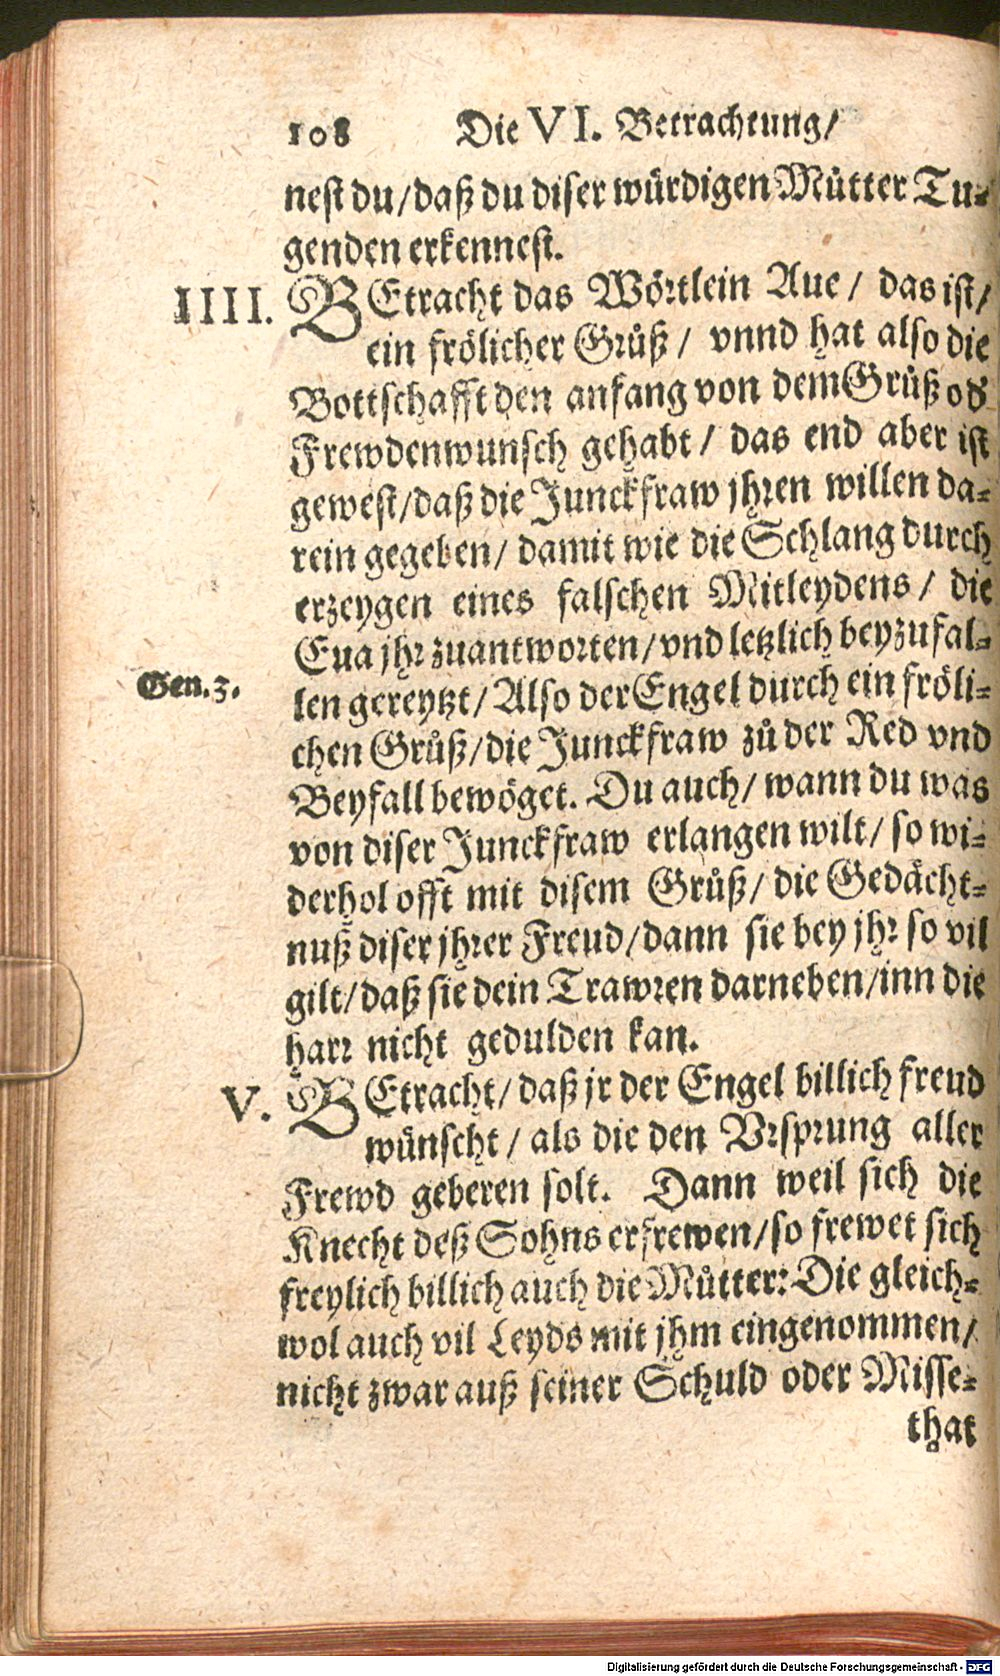 108 Die VI. Betrachtung/
nest du/daß du diser würdigen Můtter Tu-
genden erkennest.
IIII. BEtracht das Wörtlein Aue/ das ist/
ein frölicher Grůß/ vnnd hat also die
Bottschafft den anfang von dem Grůß od
Frewdenwunsch gehabt/ das end aber ist
gewest/daß die Junckfraw jhren willen da-
rein gegeben/ damit wie die Schlang durch
erzeygen eines falschen Mitleydens/ die
Eua jhr zuantworten/vnd letzlich beyzufal-
Gen.3. len gereytzt/Also der Engel durch ein fröli-
chen Grůß/die Junckfraw zů der Red vnd
Beyfall bewöget. Du auch/wann du was
von diser Junckfraw erlangen wilt/ so wi-
derhol offt mit disem Grůß/ die Gedächt-
nuß diser jhrer Freud/dann sie bey jhr so vil
gilt/daß sie dein Trawren darneben/inn die
harr nicht gedulden kan.
V. BEtracht/daß jr der Engel billich freud
wünscht/ als die den Vrsprung aller
Frewd geberen solt. Dann weil sich die
Knecht deß Sohns erfrewen/so frewet sich
freylich billich auch die Můtter: Die gleich-
wol auch vil Leyds mit jhm eingenommen/
nicht zwar auß seiner Schuld oder Misse-
that
Digitalisierung gefördert durch die Deutsche Forschungsgemeinschaft - DFG